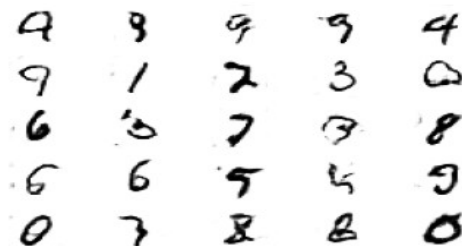 9 9 9 9 4
9 1 2 3
6 3 7 8
6 6 5 9
0 7 8 8 0